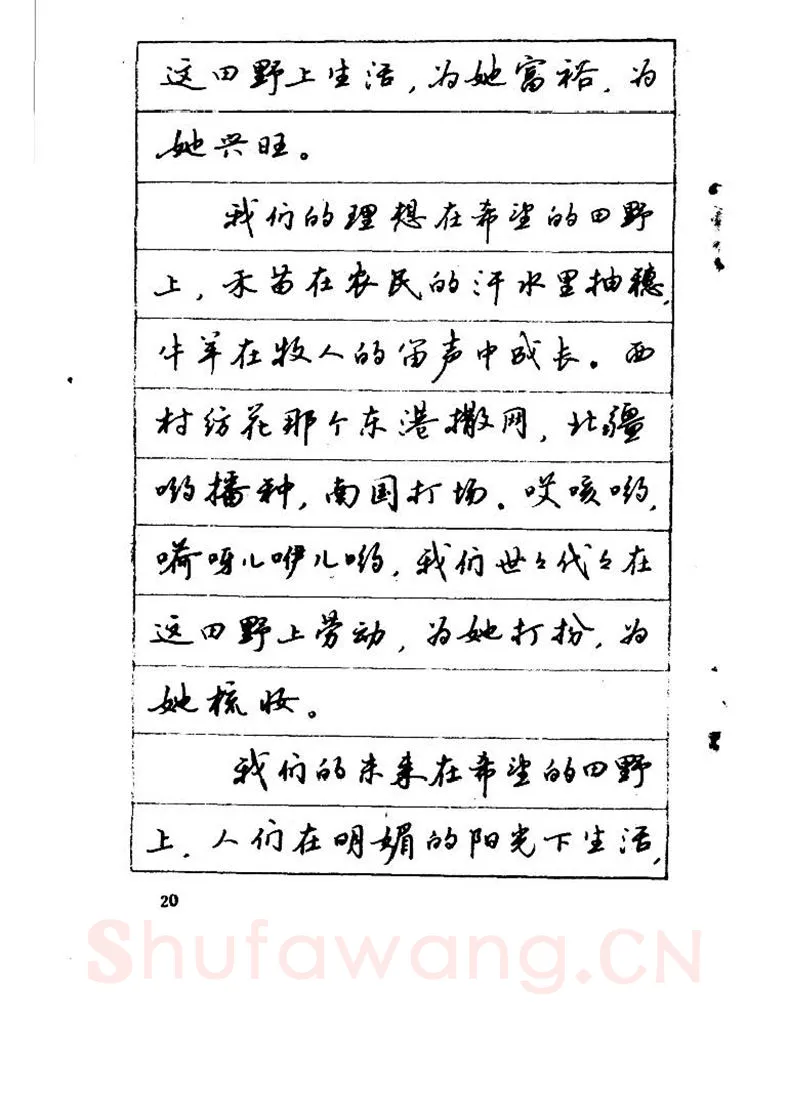 这田野上生活，为她富裕，为
她兴旺。
我们的理想在希望的田野
上，禾苗在农民的汗水里抽穗，
牛羊在牧人的笛声中成长。西
村纺花那个东港撒网，北疆
哟播种，南国打场。哎咳哟，
嗬呀儿咿儿哟，我们世々代々在
这田野上劳动，为她打扮，为
她梳妆。
我们的未来在希望的田野
上，人们在明媚的阳光下生活，
20
Shufawang.CN